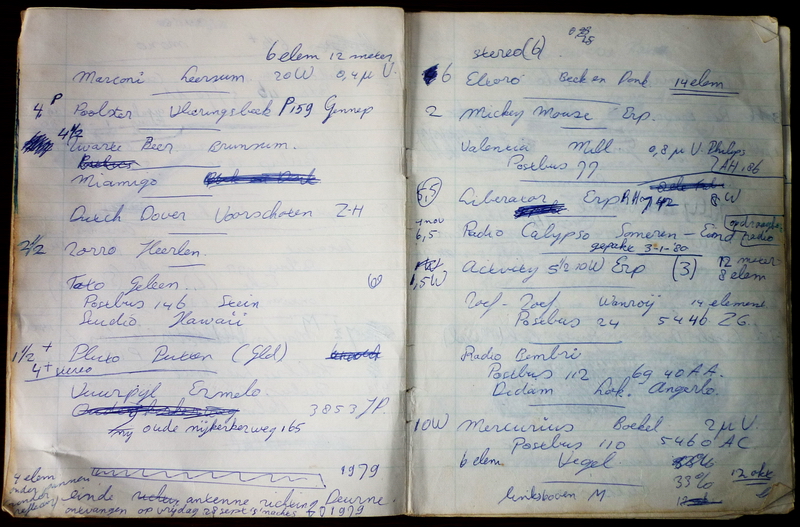 6 elem 12 meter
Marconi Leersum 20W 0,4 µ V.
4 P Poolster Vlaringsbeek P 159 Gennep
4 1/2 Zwarte Beer Brunsum.
Miamigo
Dutch Dover Voorschoten Z-H
2 1/2 Zorro Heerlen.
Tato Geleen. 6
Postbus 146 Stein
Studio Hawaii
1 1/2 + Pluto Putten (Gld)
4 + stereo
Vuurpijl Ermelo
3853 JP.
oude nijkerkerweg 165
1979
4 elem
einde antenne richting Deurne
ontvangen op vrijdag 28 sept 's nachts 1979
stereo (6)
6 Eldoro Beek en Donk 14 elem
2 Mickey Mouse Erp.
Valencia Mill 0,8 µ V. Philips
Postbus 77 AH 186
5,5 Liberator Erp 42 8 W
4 nov
6,5 Radio Calypso Someren-Eind radio
gepakt 3-1-80
1,5W Activity 5 1/2 10W Erp (3) 12 meter
8 elem
Zoef-Zoef Wanroij 14 element
Postbus 24 5446 ZG.
Radio Bembri
Postbus 112 69 40 AA.
Didam Lok. Angerlo.
10W Mercurius Boekel 2 µ V.
Postbus 110 5460 AC
6 elem. Vegel
33% 12 okt
linksboven M.